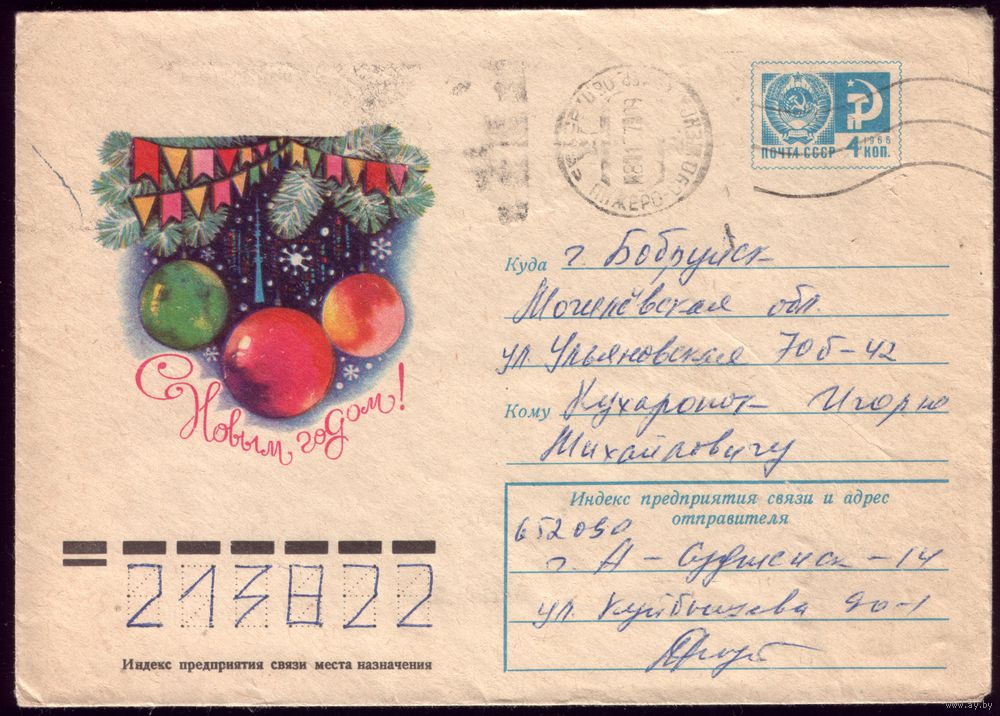 ПОЧТА СССР 4 КОП.
1966
С Новым годом!
Куда г. Бобруйск
Могилёвская обл.
ул. Ульяновская 70б-42
Кому Кухаронок Игорю
Михайловичу
Индекс предприятия связи и адрес
отправителя
652090
г. А-Судженск-14
ул. Куйбышева 90-1
213822
Индекс предприятия связи места назначения
www.ay.by